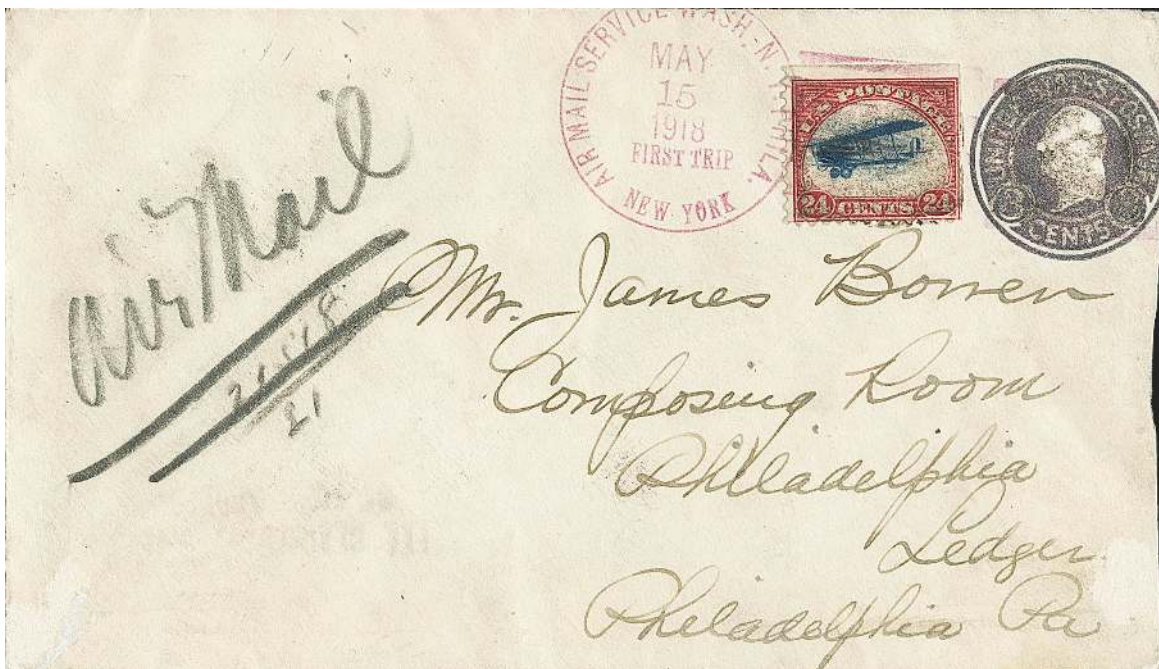 AIR MAIL SERVICE WASH.-N.Y.-PHILA.
MAY
15
1918
FIRST TRIP
NEW YORK
U.S. POSTAGE
24 CENTS 24
UNITED STATES POSTAGE
3 CENTS 3
Air Mail
21
Mr. James Bowen
Composing Room
Philadelphia
Ledger
Philadelphia Pa